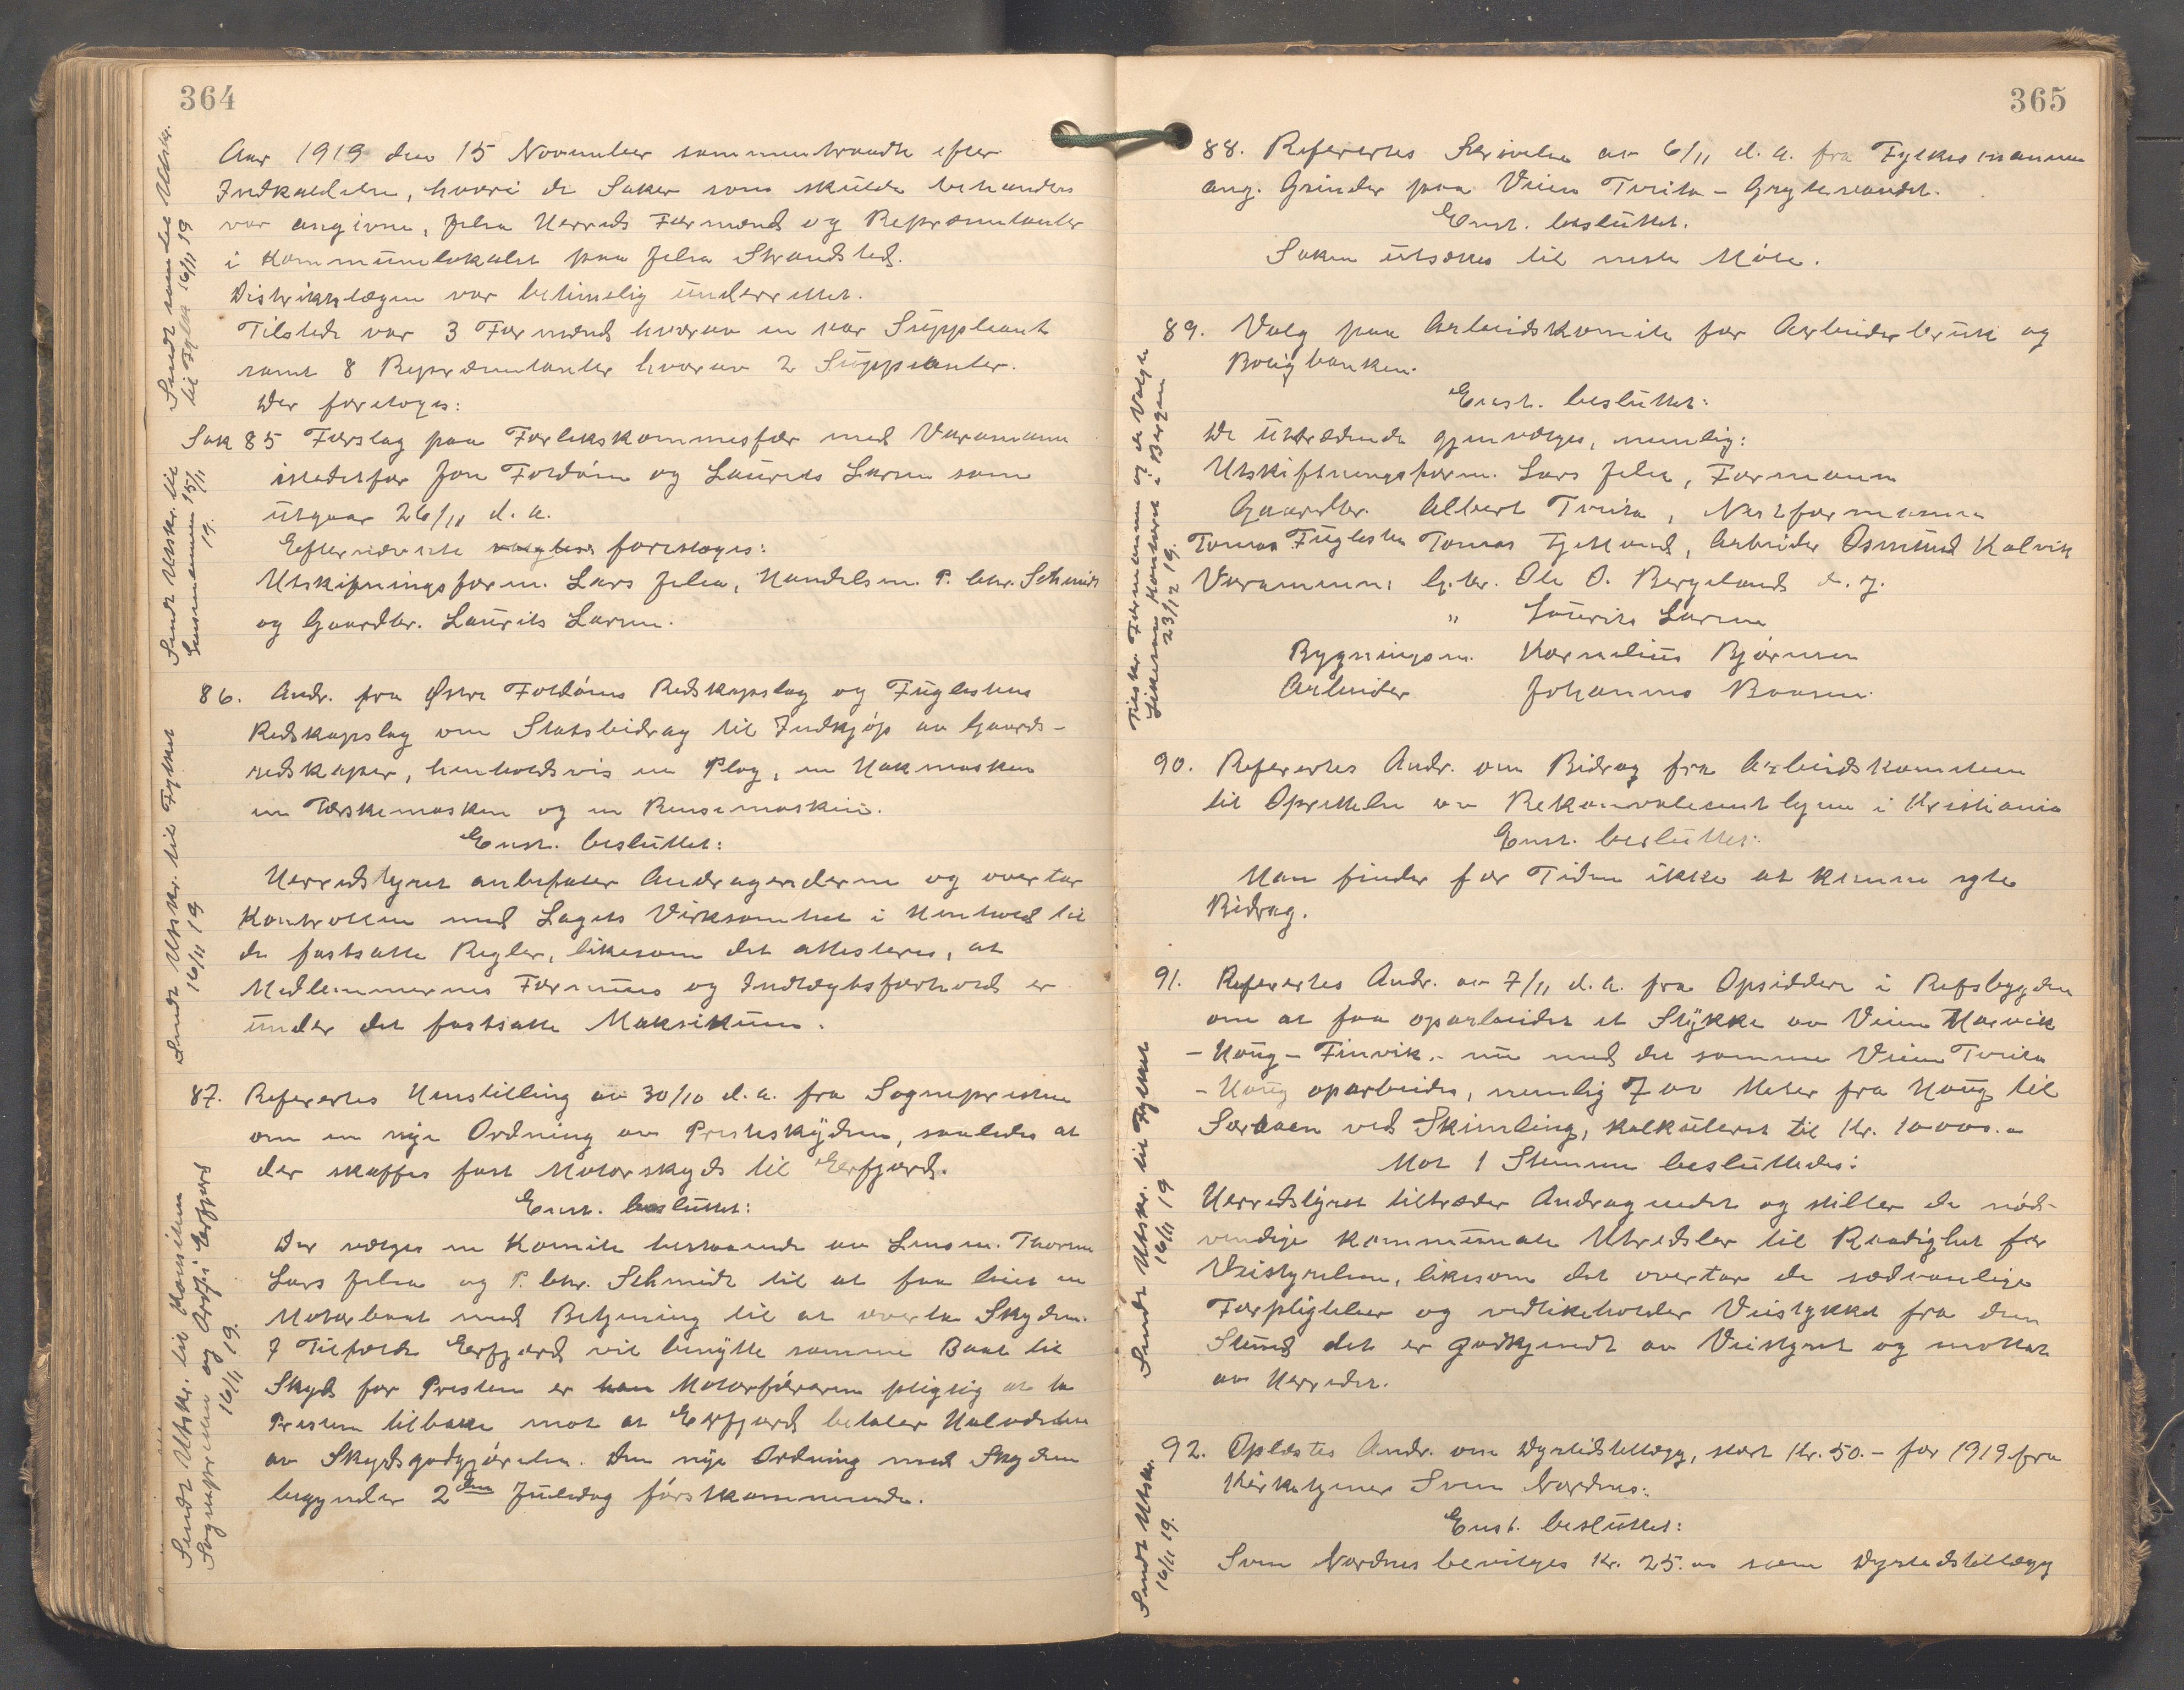 364
Aar 1919 den 15 November sammentraadte efter
Indkaldelse, hvori de Saker som skulde behandles
var angivne, Jelsa Herreds Formænd og Repræsentanter
i Kommunelokalet paa Jelsa Strandsted.
Distriktslægen var betimelig underrettet.
Tilstede var 3 Formænd hvorav en var Suppleant
samt 8 Repræsentanter hvorav 2 Suppleanter.
Der foretoges:
Sak 85 Forslag paa Forlikskommisær med Varamann
istedetfor Jon Foldøin og Laurits Larsen som
utgaar 26/11 d. a.
Efternævnte valgtes foreslages:
Utskiftningsform. Lars Jelsa, Handelsm. P. Chr. Schmidt
og Gaardbr. Laurits Larsen.
86. Andr. fra Østre Foldøens Redskapslag og Fuglestens
Redskapslag om Statsbidrag til Indkjøp av Gaards-
redskaper, henholdsvis en Plog, en Hakmaskin
en Tærskemaskin og en Rensemaskin.
Enst. besluttet:
Herredstyret anbefaler Andragenderne og overtar
Kontrollen med Lagets Virksomhet i Henhold til
de fastsatte Regler, likesom det attesteres, at
Medlemmernes Formues og Indtægtsforhold er
under det fastsatte Maksimum.
87. Refereres Henstilling av 30/10 d. a. fra Sognepresten
om en nye Ordning av Presteskydsen, saaledes at
der skaffes fast Motorskyds til Erfjord.
Enst. besluttet:
Der vælges en Komite bestaaende av Lensm. Thorsen
Lars Jelsa og P. Chr. Schmidt til at faa leiet en
Motorbaat med Betjening til at overta Skydsen.
I Tilfælde Erfjord vil benytte samme Baat til
Skyds for Presten er han Motorføreren pligtig at ta
Presten tilbake mot at Erfjord betaler Halvdelen
av Skydsgodtgjørelsen. Den nye Ordning med Skydsen
begynder 2den Juledag førstkommende.
Sendt samlet Utskr.
til Fylket 16/11 19
Sendt Utskr. til
Lensmannen 15/11
19.
Sendt Utskr. til Fylket
16/11 19
Sendt Utskr. til Komiteen
Sognepresten og Ordf. i Erfjord
16/11 19.
365
88. Referertes Skrivelse av 6/11 d. a. fra Fylkesmannen
ang. Grinder paa Veien Tveita - Grytevandet.
Enst. besluttet.
Saken utsættes til neste Møte.
89. Valg paa Arbeidskomite for Arbeiderbruk og
Boligbanken.
Enst. besluttet:
De uttrædende gjenvælges, nemlig:
Utskiftningsform. Lars Jelsa, Formann
Gaardbr. Albert Tveita, Nestformann
Tomas Fuglesten Tomas Fjelland, Arbeider Osmund Kalvik
Varamenn: G.br. Ole O. Bergeland d. y.
" Laurits Larsen
Bygningsm. Kornelius Bjørnsen
Arbeider Johannes Baasen.
90. Referertes Andr. om Bidrag fra Arbeidskomiteen
til Oprettelse av Rekonvalecenthjem i Kristiania
Enst. besluttet:
Man finder for Tiden ikke at kunne yte
Bidrag.
91. Referertes Andr. av 7/11 d. a. fra Opsiddere i Refsbygden
om at faa oparbeidet et Stykke av Veien Marvik
- Haug - Finvik.- nu med det samme Veien Tveita
- Haug oparbeides, nemlig 700 Meter fra Haug til
ved Skimling, kalkuleret til Kr. 10000.-
Mot 1 Stemme besluttedes:
Herredstyret tiltræder Andragendet og stiller de nød-
vendige kommunale Utredsler til Raadighet for
Veistyrelsen, likesom det overtar de sædvanlige
Forpligtelser og vedlikeholder Veistykket fra den
Stund det er godkjendt av Veistyret og mottat
av Herredet.
92. Oplæstes Andr. om Dyrtidstillegg, stort Kr. 50.- for 1919 fra
Kirketjener Sven Nordnes.
Enst. besluttet:
Sven Nordnes bevilges Kr. 25.00 som Dyrtidstillægg
Tilskr. Formannen og de Valgte
likesom Kontoret i Bergen
23/12 19.
Sendt Utskr. til Fylket
16/11 19
Sendt Utskr.
16/11 19.